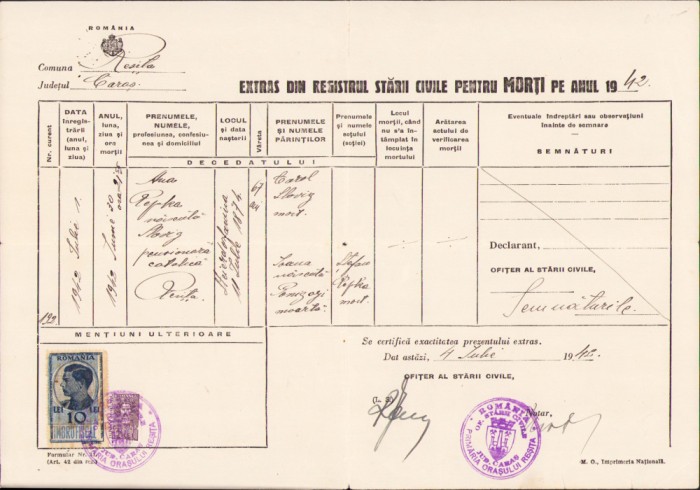 ROMÂNIA
Comuna Reșița
Județul Caraș
EXTRAS DIN REGISTRUL STĂRII CIVILE PENTRU MORȚI PE ANUL 1942.
Nr. curent
DATA
înregis-
trării
(anul,
luna și
ziua)
ANUL,
luna,
ziua și
ora
morții
PRENUMELE,
NUMELE,
profesiunea, confesiu-
nea și domiciliul
LOCUL
și data
nașterii
Vârsta
PRENUMELE
ȘI NUMELE
PĂRINȚILOR
Prenumele
și numele
soțului
(soției)
Locul
morții, când
nu s'a în-
tâmplat în
locuința
mortului
Arătarea
actului de
verificarea
morții
Eventuale îndreptări sau observațiuni
înainte de semnare
SEMNĂTURI
DECEDATULUI
199
1942 Iulie 1.
1942 Iunie 30
Ana
Pepka
născută
Slovig
pensionara
catolică
Reșița.
11 Iulie 1874
67
ani
Carol
Slovig
mort
Ioana
născută
moartă
Ștefan
Pepka
mort
Declarant,
OFIȚER AL STĂRII CIVILE,
Semnăturile
MENȚIUNI ULTERIOARE
Se certifică exactitatea prezentului extras.
Dat astăzi, 4 Iulie 1942
OFIȚER AL STĂRII CIVILE,
(L. S)
Notar,
ROMÂNIA
LEI 10 LEI
ROMÂNIA
OF. STĂRII CIVILE
JUD. CARAȘ
PRIMĂRIA ORAȘULUI REȘIȚA
Formular Nr.
(Art. 42 din reg.)
M. O., Imprimeria Națională.